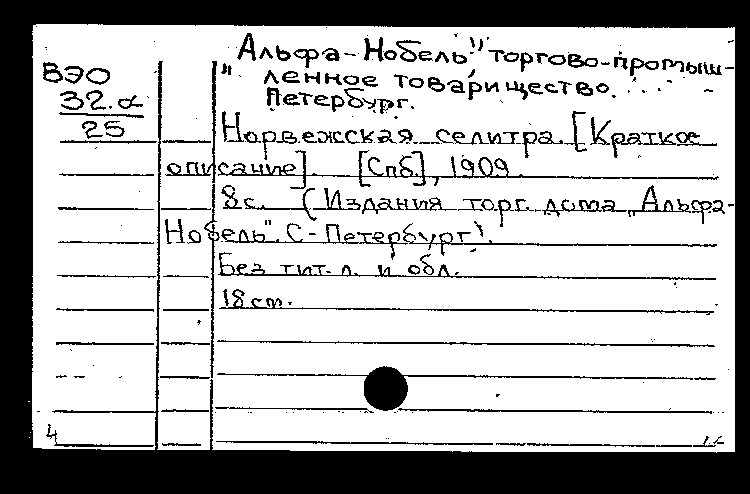 "Альфа-Нобель" торгово-промыш-
ленное товарищество.
Петербург.
ВЭО
32.α
25
Норвежская селитра. [Краткое
описание]. [Спб.], 1909.
8с. (Издания торг. дома „Альфа-
Нобель". С-Петербург).
Без тит. л. и обл.
18 см.
4